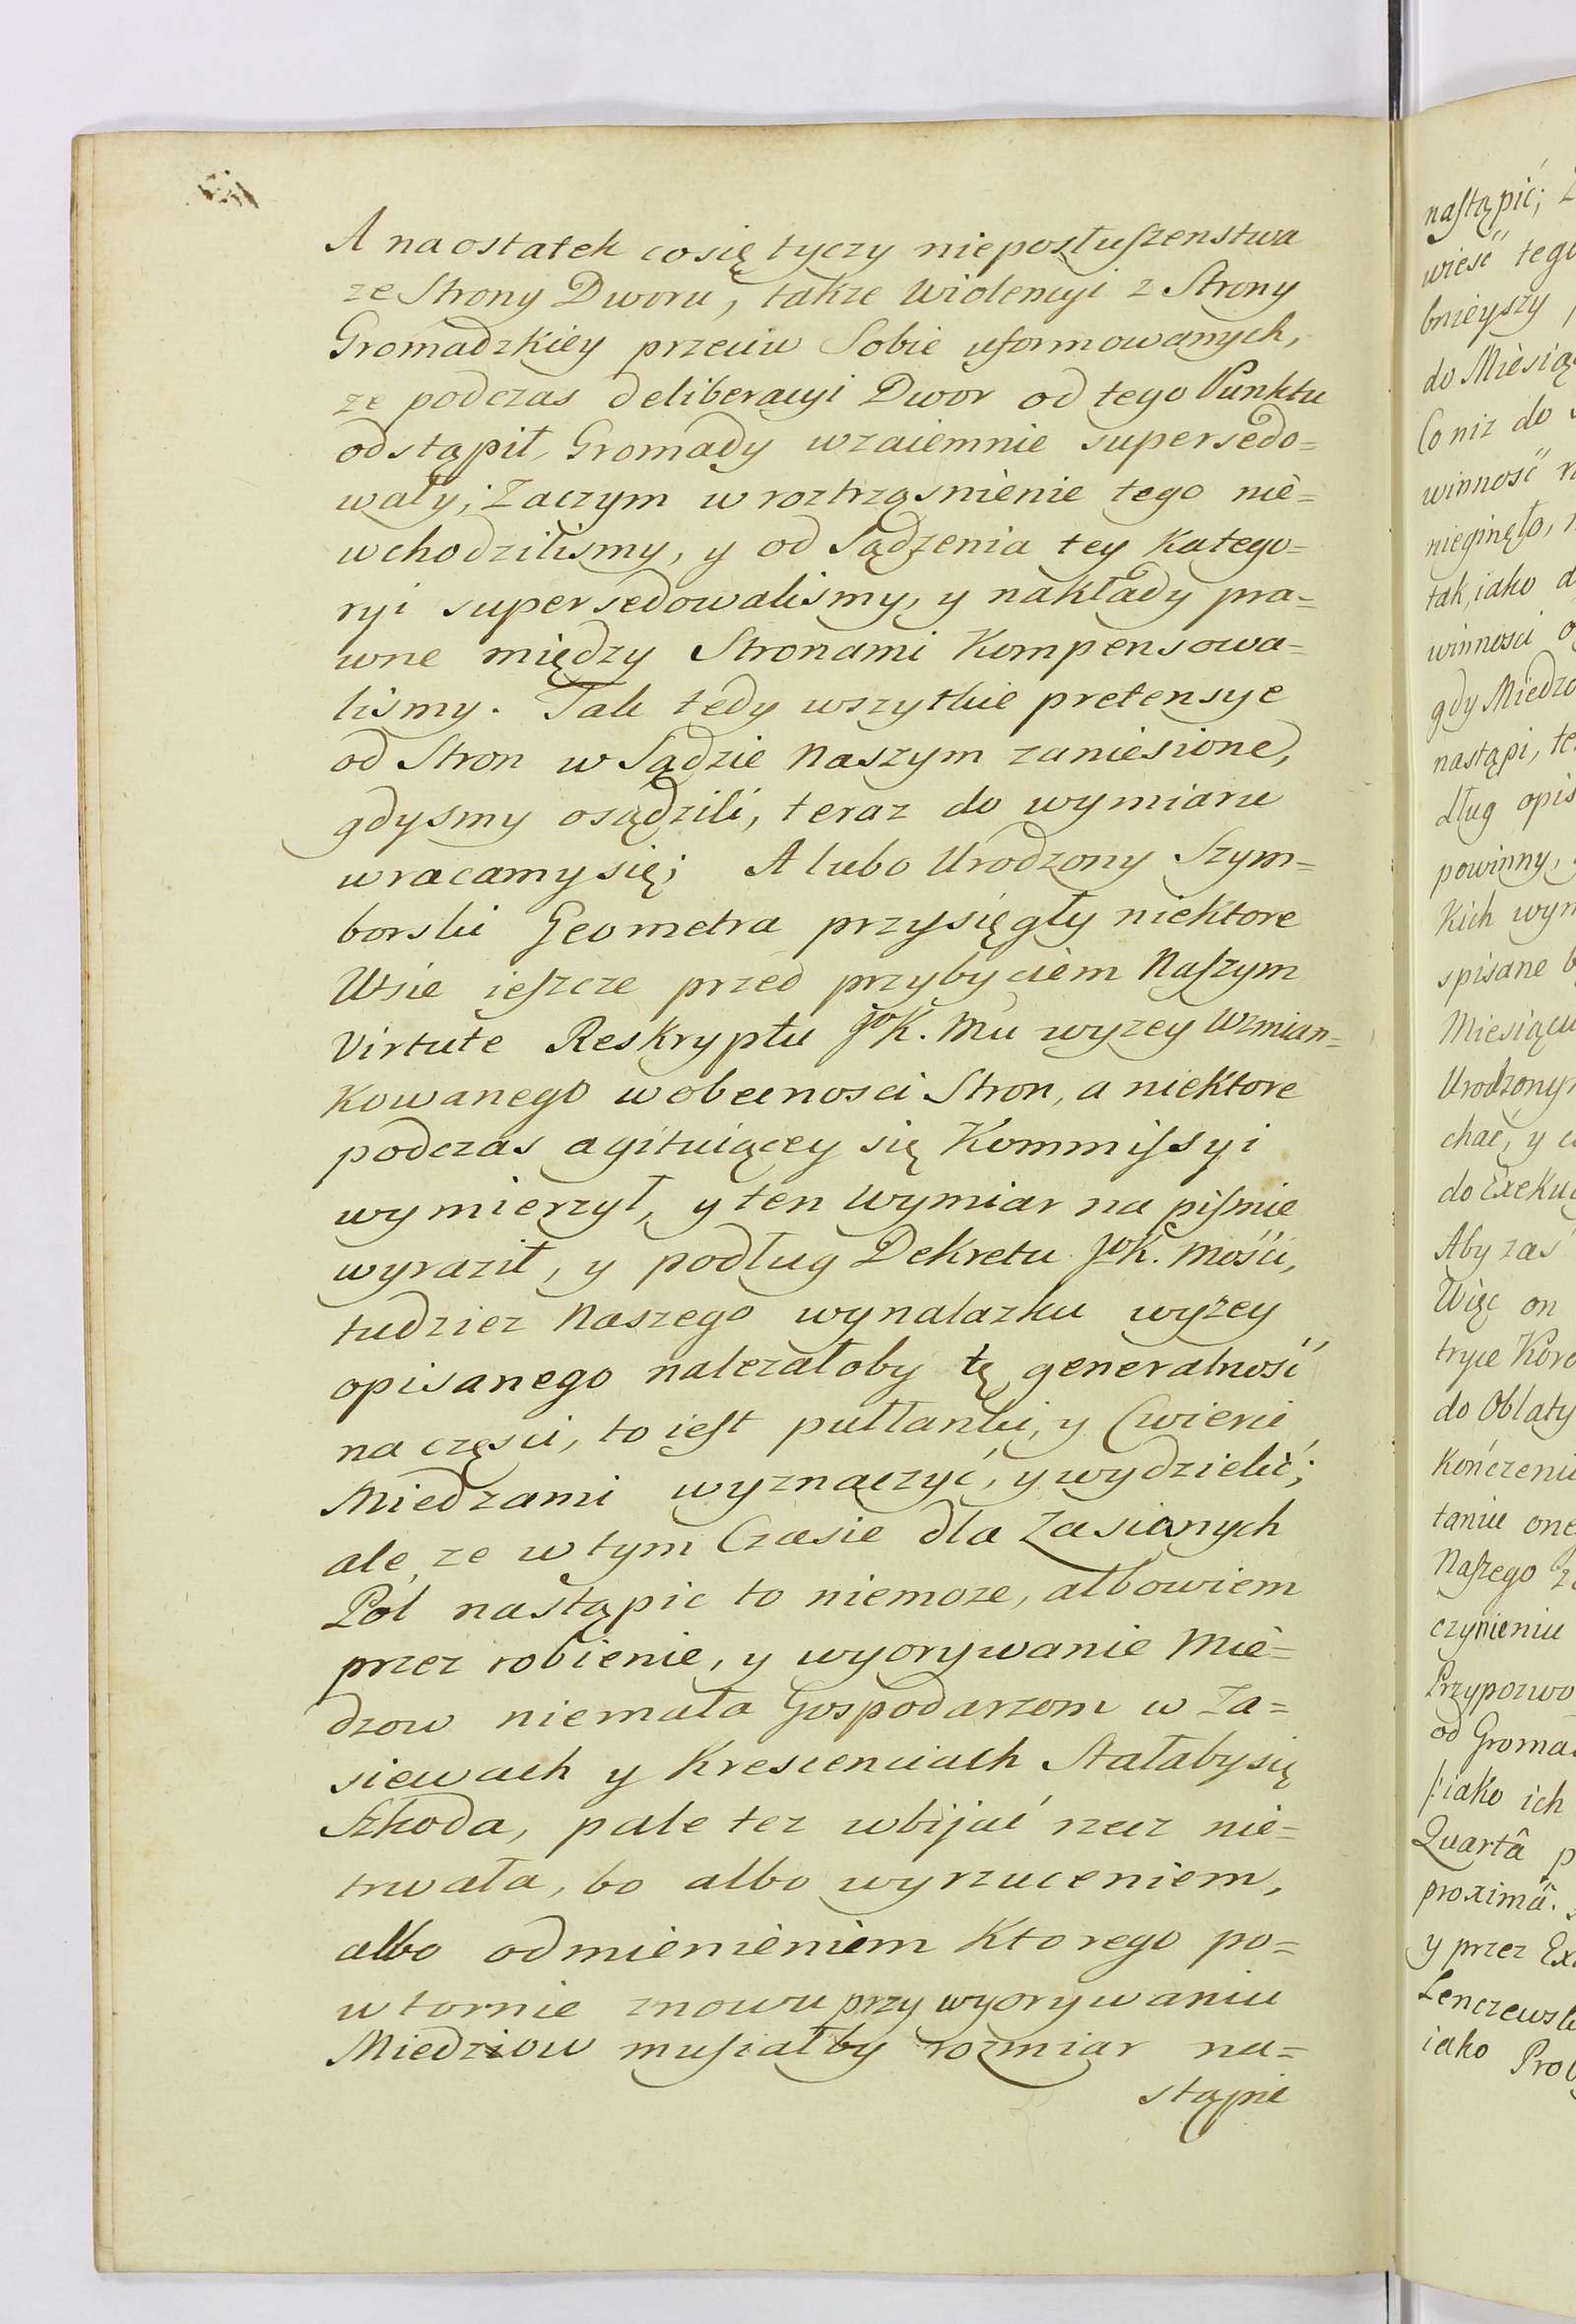 A na ostatek co się tyczy nieposłuſzenstwa
ze Strony Dworu, takze Wiolencyi z Strony
Gromadzkiey przeciw Sobie uformowanych,
ze podczas deliberacyi Dwor od tego Punktu
odstąpił, Gromady wzaiemnie supersedo=
wały; Zaczym w roztrząsnienie tego nie=
wchodzilismy, y od Sądzenia tey Katego=
ryi supersedowalismy, y nakłady pra=
wne między Stronami Kompensowa=
lismy. Tak tedy wszytkie pretensye
od Stron w Sądzie Naszym zaniesione,
gdysmy osądzili, teraz do wymiaru
wracamy się; A lubo Urodzony Szym=
borski Geometra przysięgły niektore
Wsie ieſzcze przed przybyciem Naſzym
Virtute Reskryptu JoK. Mci wyzey Wzmian=
Kowanego w obecnosci Stron, a niektore
podczas agituiącey się Kommiſsyi
wymierzył, y ten Wymiar na piſmie
wyraził, y podług Dekretu JoK. Mości,
tudziez Naszego wynalazku wyżey
opisanego nalezałoby tę generalność
na częsci, to ieſt pułłanki, y Cwierci
Miedzami wyznaczyć, y wydzielić;
ale, ze w tym Czasie dla Zasianych
Pol nastąpic to niemoze, albowiem
przez robienie, y wyorywanie Mie=
dzow niemała Gospodarzom w Za=
siewach y Krescenciach Stałaby się
Szkoda, pale tez wbijać rzecz nie=
trwała, bo albo wyrzuceniem,
albo odmienieniem Ktorego po=
wtornie znowu przy wyorywaniu
Miedziow muſiałby rozmiar na=
stąpic
naſtąpić;
wieść tego
bnieyszy
do Miesią
Co niz do
winność
nieginęło,
tak, iako
winnosci
gdy Miedzo
nastąpi,
dług opis
powinny,
Kich wym
spisane
Miesiącu
Urodzonym
chać, y
do Exeku
Aby zaś
Więc on
tryce Koro
do Oblaty
Kończeniu
taniu one
Naſzego
czynieniu
Przypozwo
od Groma
/:iako ich
Quartâ p
proximâ.
y przez Ex
Lenczewsk
iako Pro